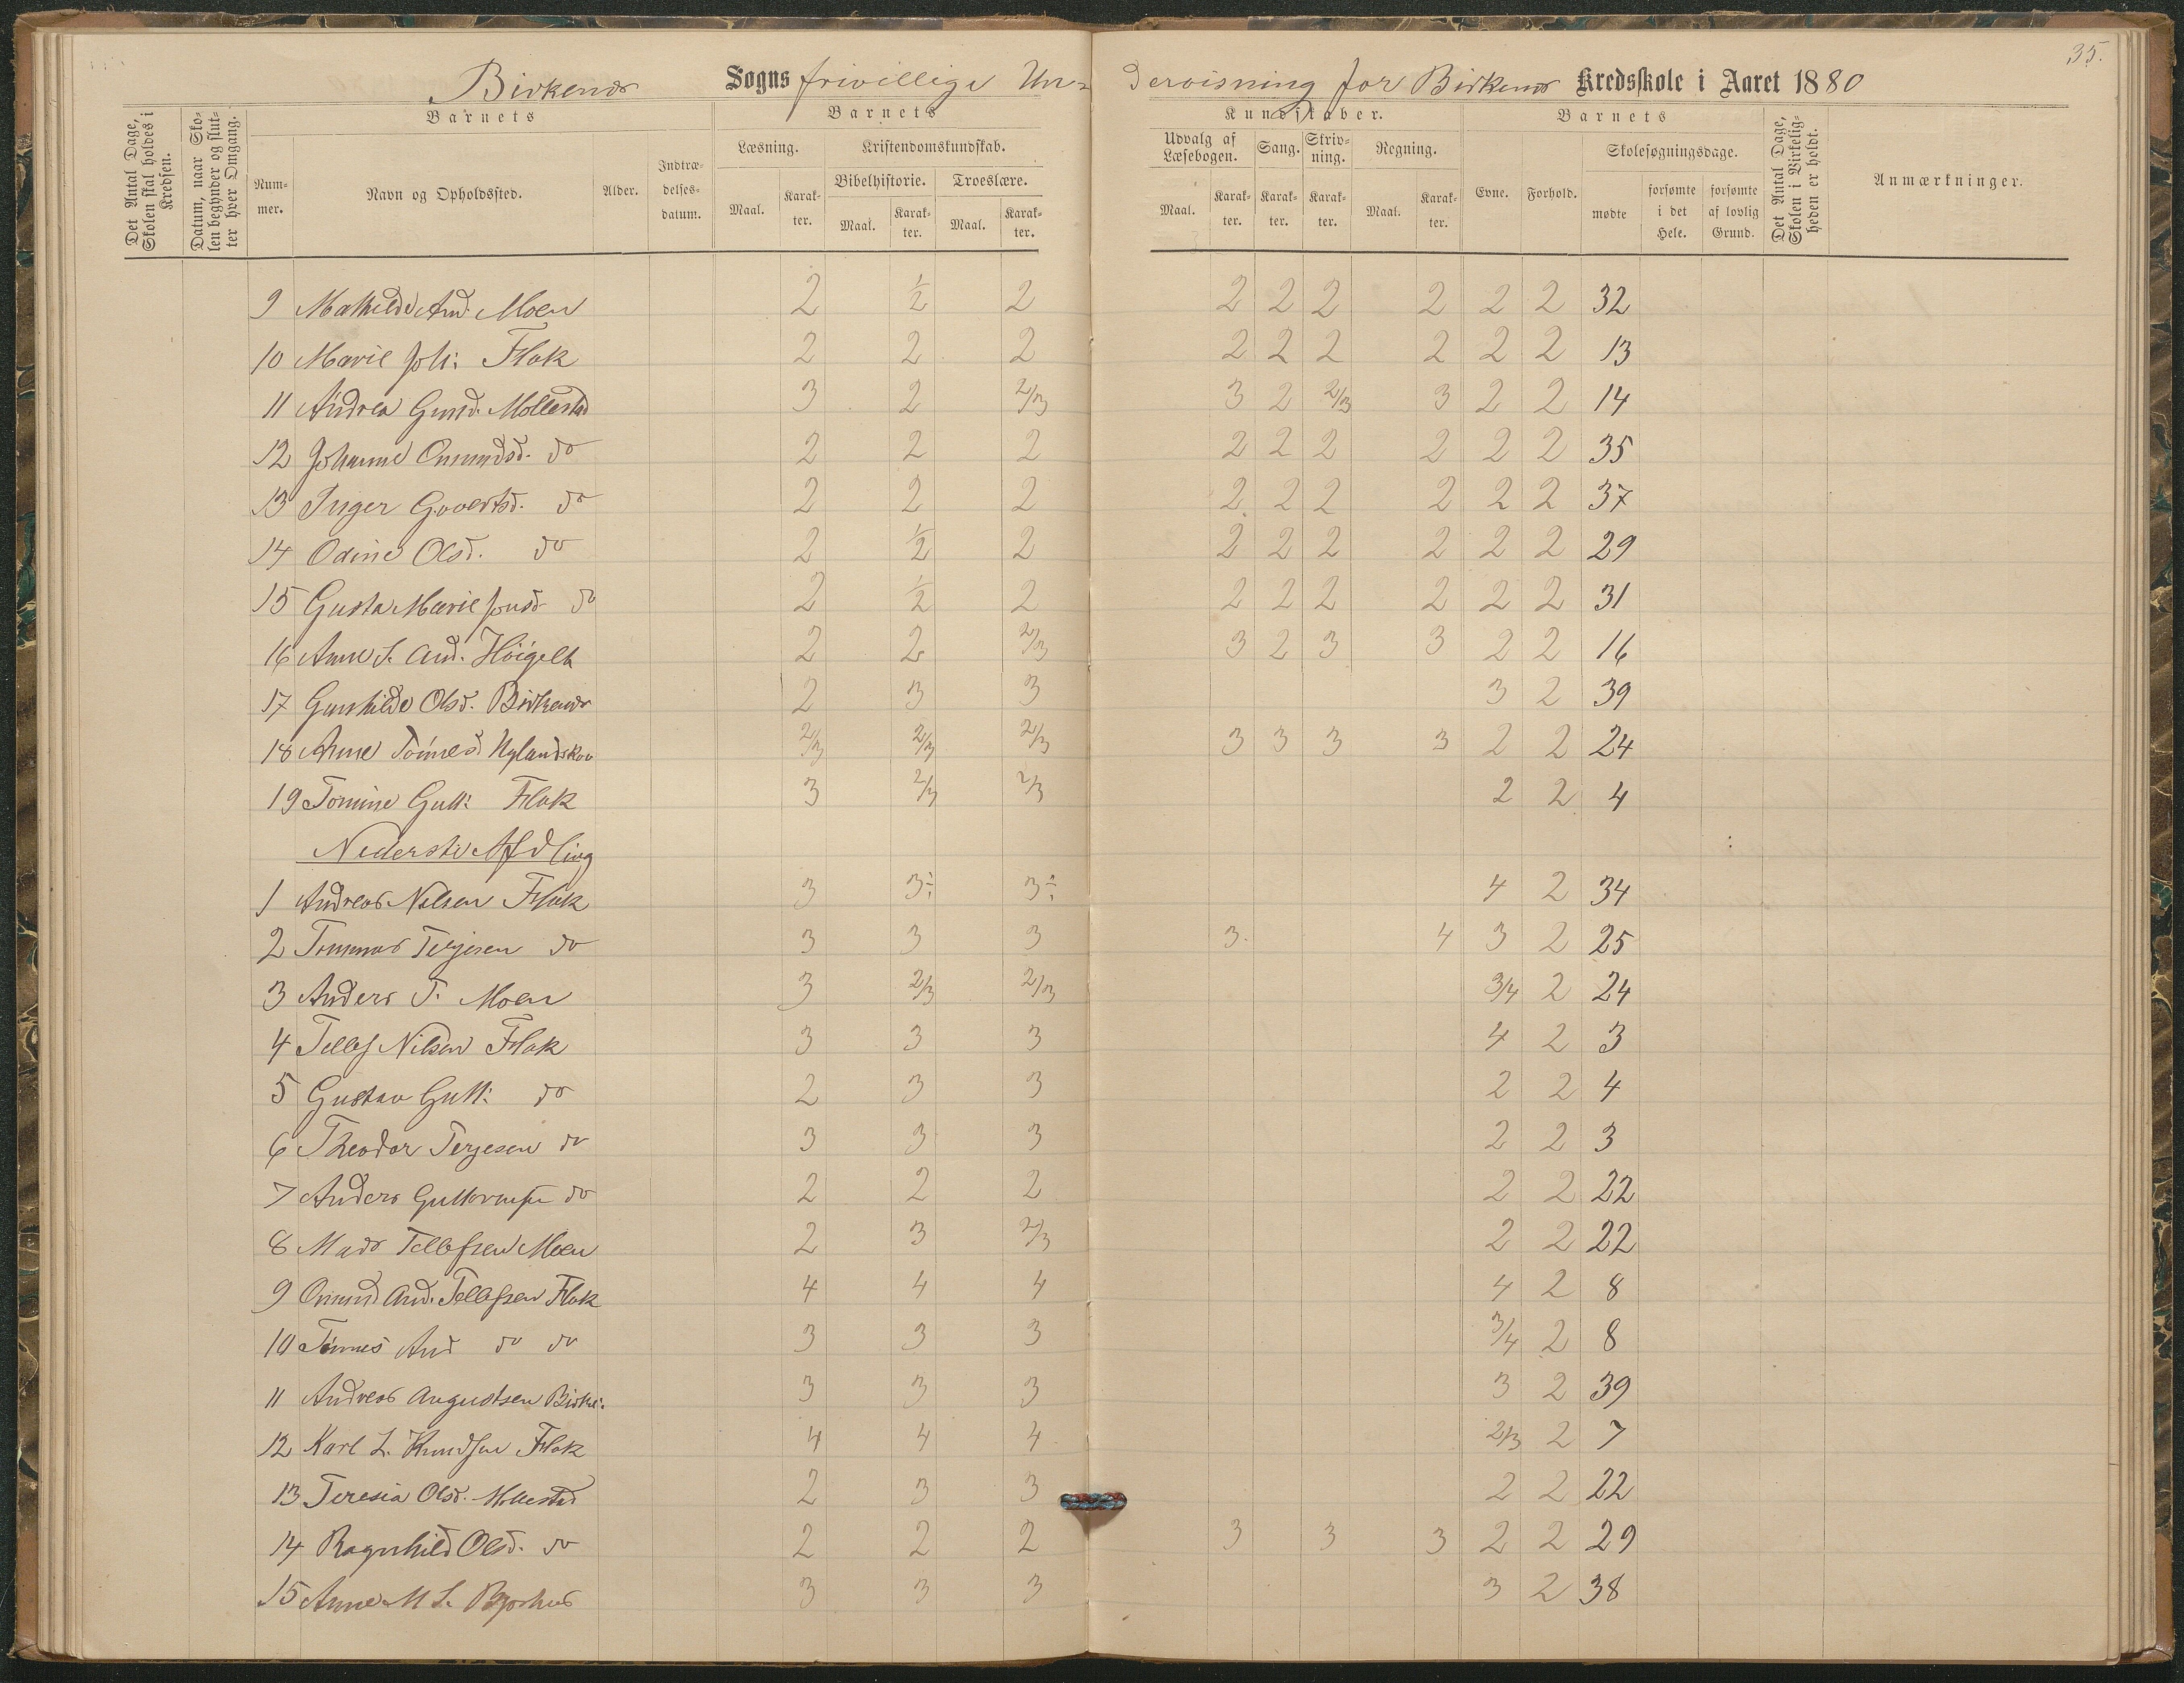 35.
Birkenes Sogns frivillige Un= dervisning for Birkenes Kredsskole i Aaret 1880
Det Antal Dage, Skolen skal holdes i Kredsen.
Datum, naar Skolen begynder og slutter hver Omgang.
Barnets Barnets Kundskaber. Barnets
Nummer. Navn og Opholdssted. Alder. Indtrædelsesdatum.
Læsning. Kristendomskundskab. Udvalg af Læsebogen. Sang. Skrivning. Regning. Evne. Forhold. Skolesøgningsdage.
Bibelhistorie. Troeslære.
Maal. Karakter. Maal. Karakter. Maal. Karakter. Maal. Karakter. Karakter. Karakter. Maal. Karakter. mødte forsømte i det Hele. forsømte af lovlig Grund.
Det Antal Dage, Skolen i Virkeligheden er holdt.
Anmærkninger.
9 Mathilde And. Moen 2 1/2 2 2 2 2 2 2 2 32
10 Marie Joh: Flak 2 2 2 2 2 2 2 2 2 13
11 Andrea Gund. Mollestad 3 2 2/3 3 2 2/3 3 2 2 14
12 Johanne Omundsd. do 2 2 2 2 2 2 2 2 2 35
13 Inger Govertsd. do 2 2 2 2 2 2 2 2 2 37
14 Odine Olsd. do 2 1/2 2 2 2 2 2 2 2 29
15 Gusta Marie Jensd do 2 1/2 2 2 2 2 2 2 2 31
16 Anne S. And. Höigelt 2 2 2/3 3 2 3 3 2 2 16
17 Gunhilde Olsd. Birkenes 2 3 3 3 2 39
18 Anne Tönnesd. Uglandskov 2/3 2/3 2/3 3 3 3 3 2 2 24
19 Tomine Gutt: Flak 3 2/3 2/3 2 2 4
Nederste Afdling
1 Andreas Nilsen Flak 3 3÷ 3÷ 4 2 34
2 Tommas Terjesen do 3 3 3 3. 4 3 2 25
3 Anders T. Moen 3 2/3 2/3 3/4 2 24
4 Tellef Nilsen Flak 3 3 3 4 2 3
5 Gustav Gutt: do 2 3 3 2 2 4
6 Theodor Terjesen do 3 3 3 2 2 3
7 Anders Guttormsen do 2 2 2 2 2 22
8 Mads Tellefsen Moen 2 3 2/3 2 2 22
9 Omund And. Tellefsen Flak 4 4 4 4 2 8
10 Tönnes And do do 3 3 3 3/4 2 8
11 Andreas Augustsen Birke: 3 3 3 3 2 39
12 Karl L. Knudsen Flak 4 4 4 2/3 2 7
13 Teresia Olsd. Mollestad 2 3 3 2 2 22
14 Ragnhild Olsd. do 2 2 2 3 3 3 2 2 29
15 Anne M S. 3 3 3 3 2 38